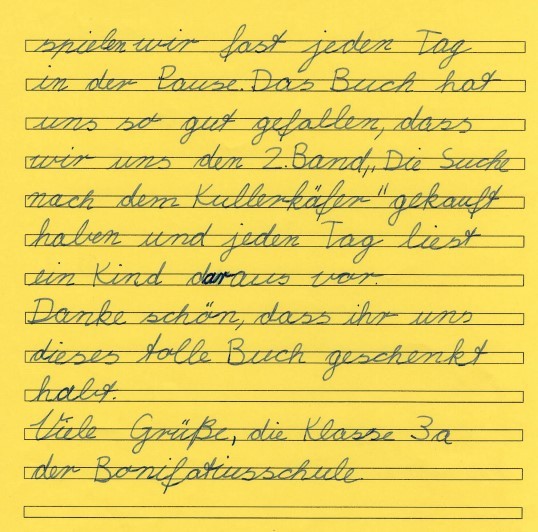 spielen wir fast jeden Tag
in der Pause. Das Buch hat
uns so gut gefallen, dass
wir uns den 2. Band, „Die Suche
nach dem Kullerkäfer" gekauft
haben und jeden Tag liest
ein Kind daraus vor.
Danke schön, dass ihr uns
dieses tolle Buch geschenkt
habt.
Viele Grüße, die Klasse 3a
der Bonifatiusschule.